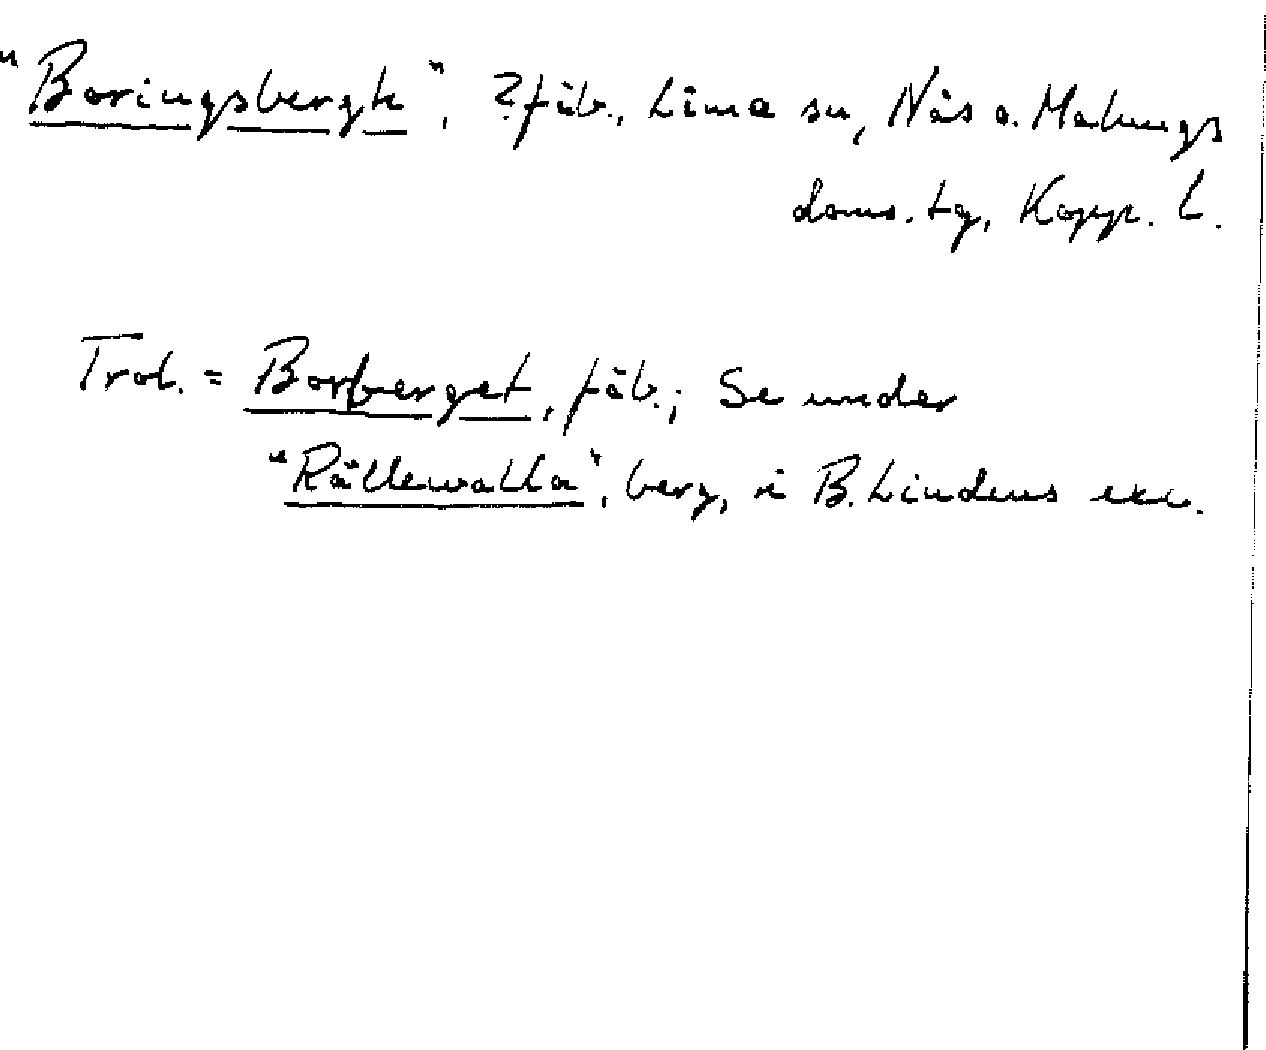 "Boringsbergh", ?fäb., Lima sn, Nås o. Malungs
doms. tg, Kopp. l.
Trol. = Borberget, fäb.; Se under
"Rällewalla", berg, i B. Lindens exc.